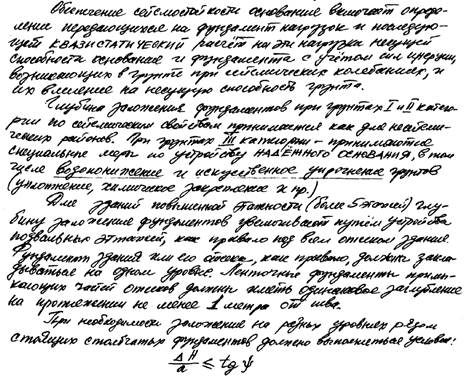 Обеспечение сейсмостойкости основание включает опреде-
ление передающихся на фундамент нагрузок и последую-
щий КВАЗИСТАТИЧЕСКИЙ расчёт на эти нагрузки несущей
способности основание и фундамента с учётом сил инерции,
возникающих в грунте при сейсмических колебаниях, и
их влияние на несущую способность грунта.
Глубина заложения фундаментов при грунтах I и II катего-
рии по сейсмическим свойствам принимается как для несейсми-
ческих районов. При грунтах III категории - принимаются
специальные меры по устройству НАДЁЖНОГО ОСНОВАНИЯ, в том
числе водопонижение и искусственное упрочнение грунтов
(уплотнение, химическое закрепление и пр.)
Для зданий повышенной этажности (более 5 этажей) глу-
бину заложения фундаментов увеличивают путём устройства
подвальных этажей, как правило под всем отсеком здание.
Фундамент здания или его отсека, как правило, должны закла-
дываться на одном уровне. Ленточные фундаменты примы-
кающих частей отсеков должны иметь одинаковое заглубление
на протяжении не менее 1 метра от шва.
При необходимости заложение на разных уровнях рядом
стоящих столбчатых фундаментов должно выполняться условие:
ΔH/a ≤ tg ψ